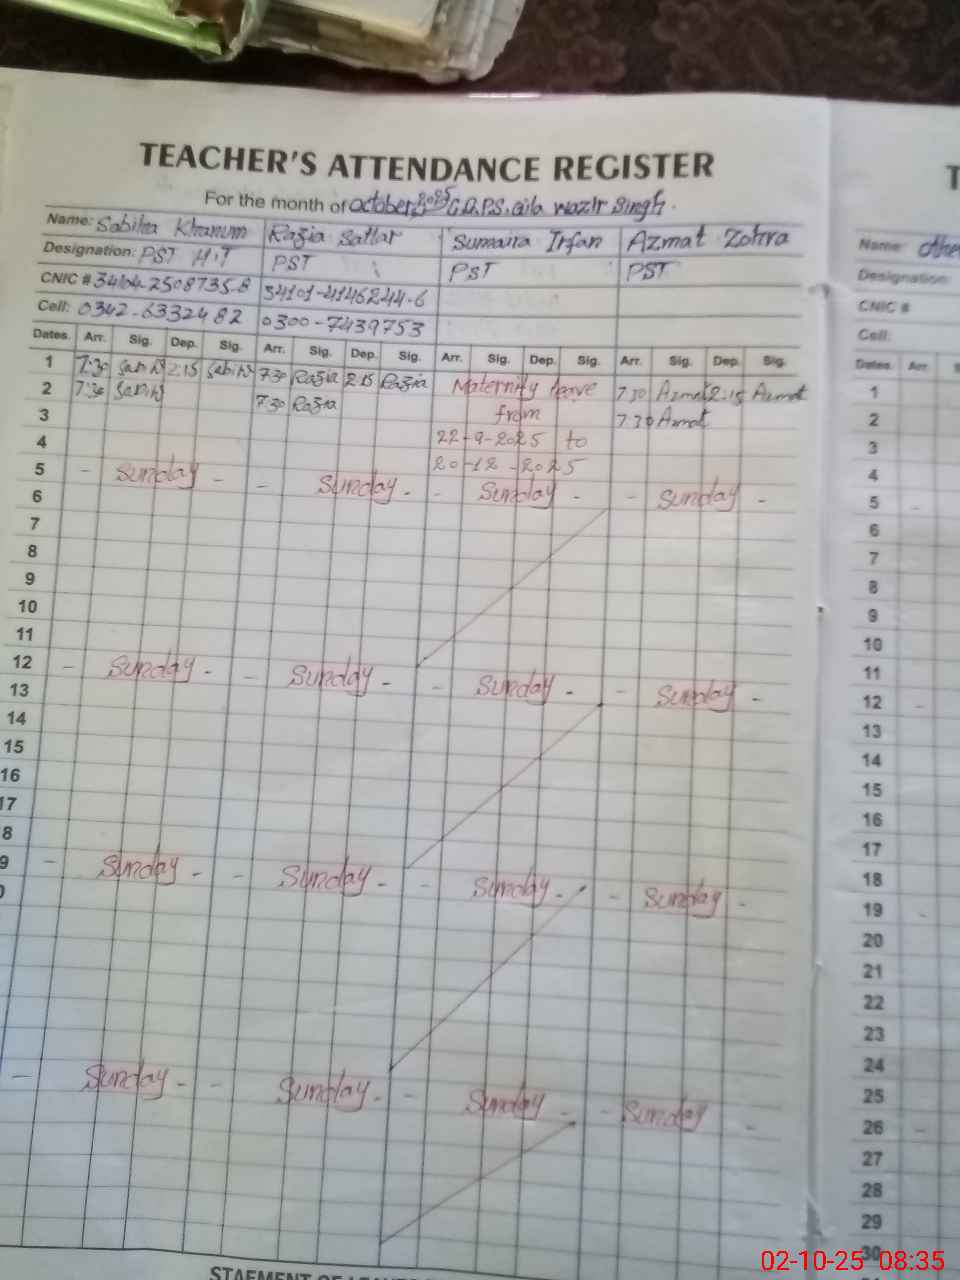 TEACHER'S ATTENDANCE REGISTER
For the month of October 2025 G.P.S. Qila Wazir Singh.
Name: Sabiha Khanum Razia Sattar Sumaira Irfan Azmat Zohra
Designation: PST H.T PST PST PST
CNIC # 34101-4146244-6
Cell: 0342-6332482 0300-7439753
Dates. Arr. Sig. Dep. Sig. Arr. Sig. Dep. Sig. Arr. Sig. Dep. Sig. Arr. Sig. Dep. Sig.
1 7:30 Sabiha 2:15 Sabiha 7:30 Razia 2:15 Razia Maternity leave 7:30 Azmat 2:15 Azmat
2 7:30 Sabiha 7:30 Razia from 7:30 Azmat
3
4 22-9-2025 to
5 - Sunday - 20-12-2025
6 - Sunday - - Sunday - - Sunday -
7
8
9
10
11
12 - Sunday - - Sunday - - Sunday - - Sunday -
13
14
15
16
17
8
9 - Sunday - - Sunday - - Sunday - - Sunday -
0
- Sunday - - Sunday - - Sunday - - Sunday -
T
Name:
Designation
CNIC #
Cell:
Dates. Arr.
1
2
3
4
5 -
6
7
8
9
10
11
12 -
13
14
15
16
17
18
19 -
20
21
22
23
24
25
26 -
27
28
29
30
02-10-25 08:35